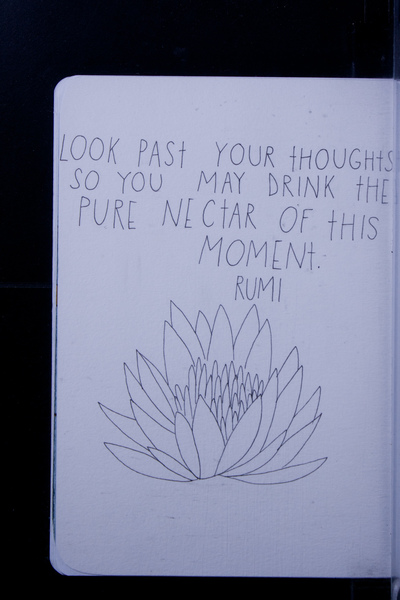 LOOK PAST YOUR tHOUGHtS
SO YOU MAY DRINK tHE
PURE NECtAR OF tHIS
MOMENt.
RUMI